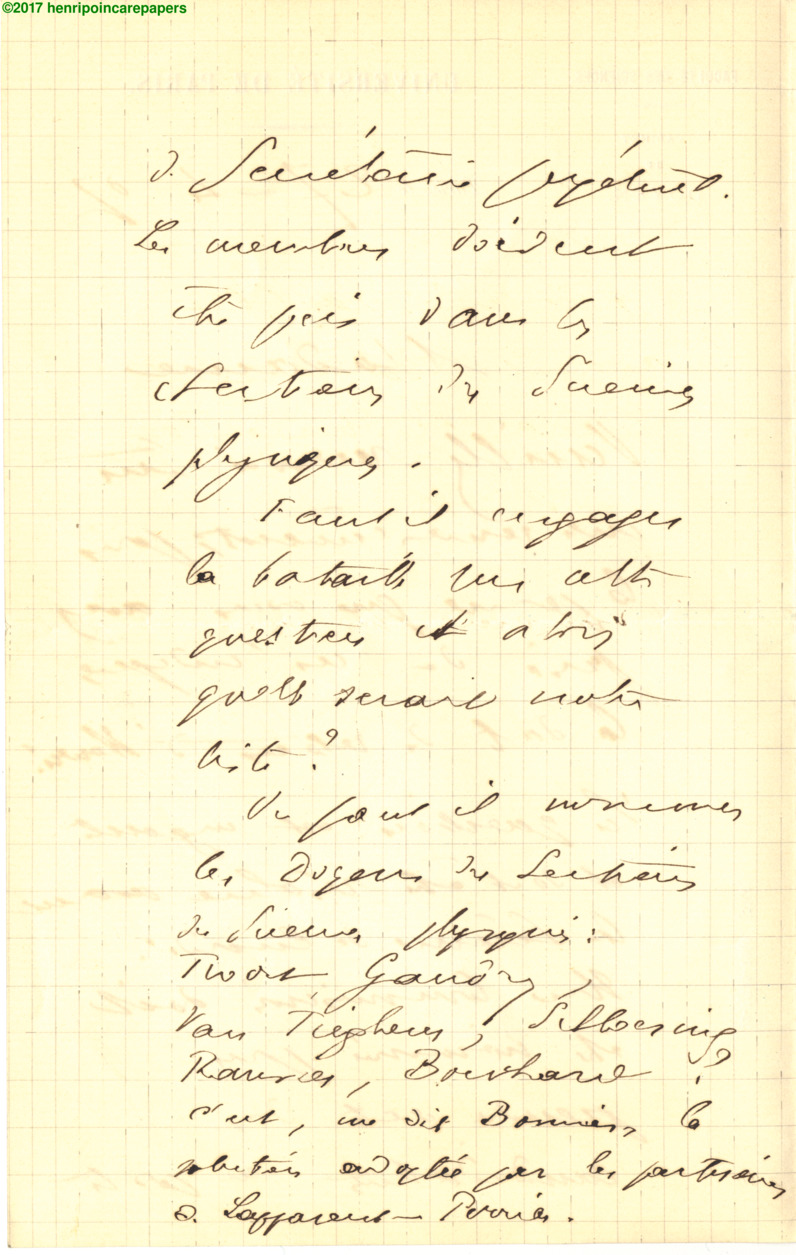 ©2017 henripoincarepapers
de Secrétaire perpétuel.
Les membres doivent
être pris dans les
Sections des Sciences
physiques.
Faut il engager
la bataille sur cette
question et alors
quelle serait notre
liste?
Ou faut il nommer
les Doyens des Sections
des Sciences physiques:
Troost, Gaudry,
Van Tieghem, Schloesing
Ranvier, Bouchard?
C'est, me dit Bonnier, la
solution adoptée par les partisans
de Lapparent – Perrier.